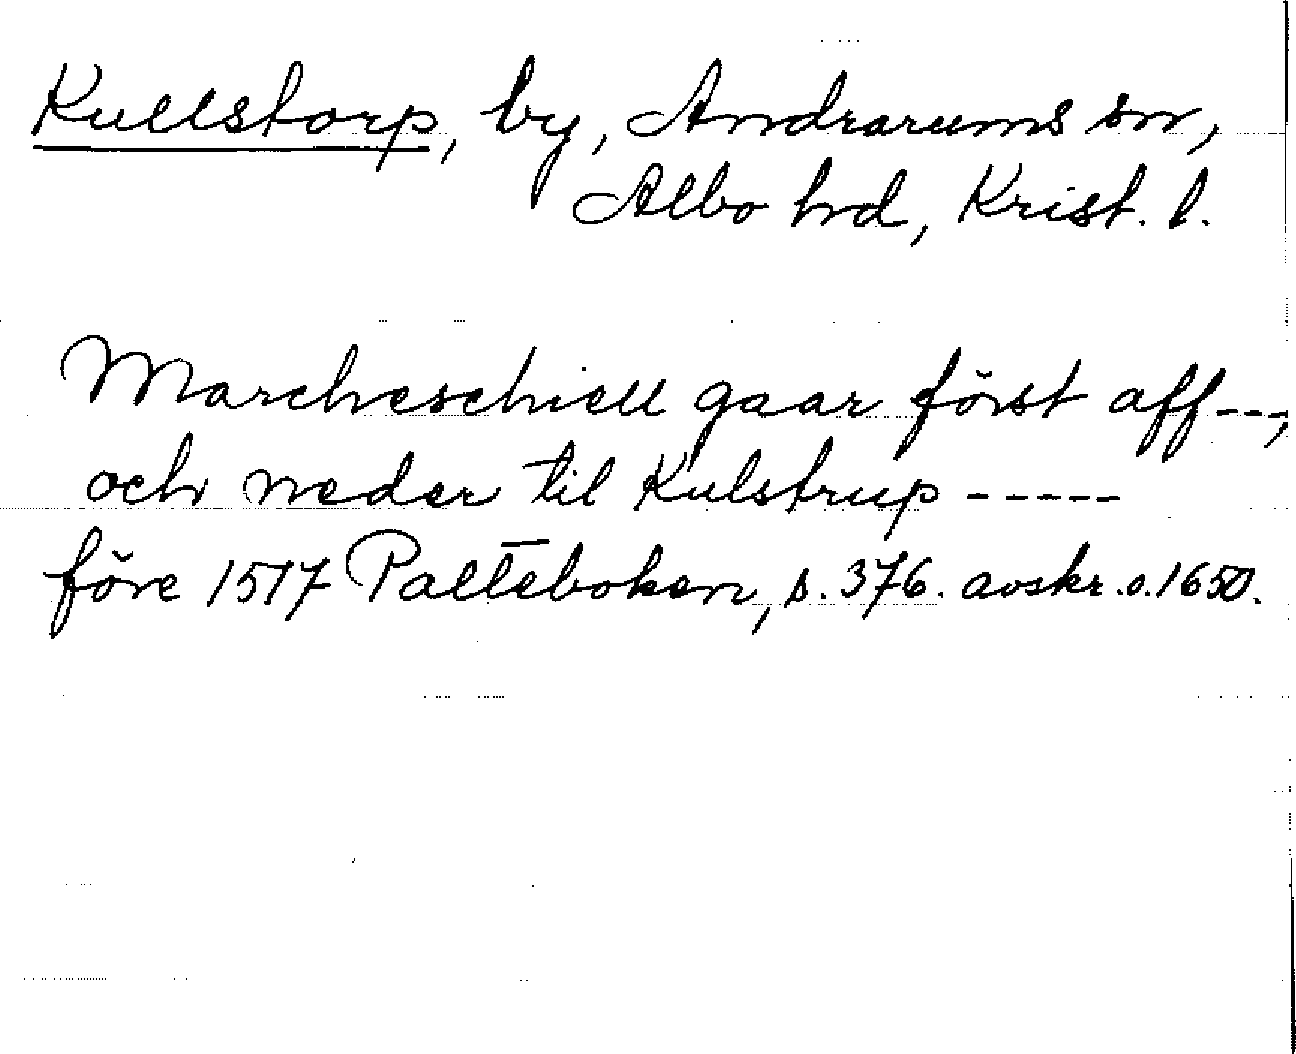 Kullstorp, by, Andrarums sn,
Albo hd, Krist. l.
Marcheschiell gaar först aff ---,
och neder til Kulstrup -----
före 1517 Palteboken, s. 376. avskr. o. 1650.